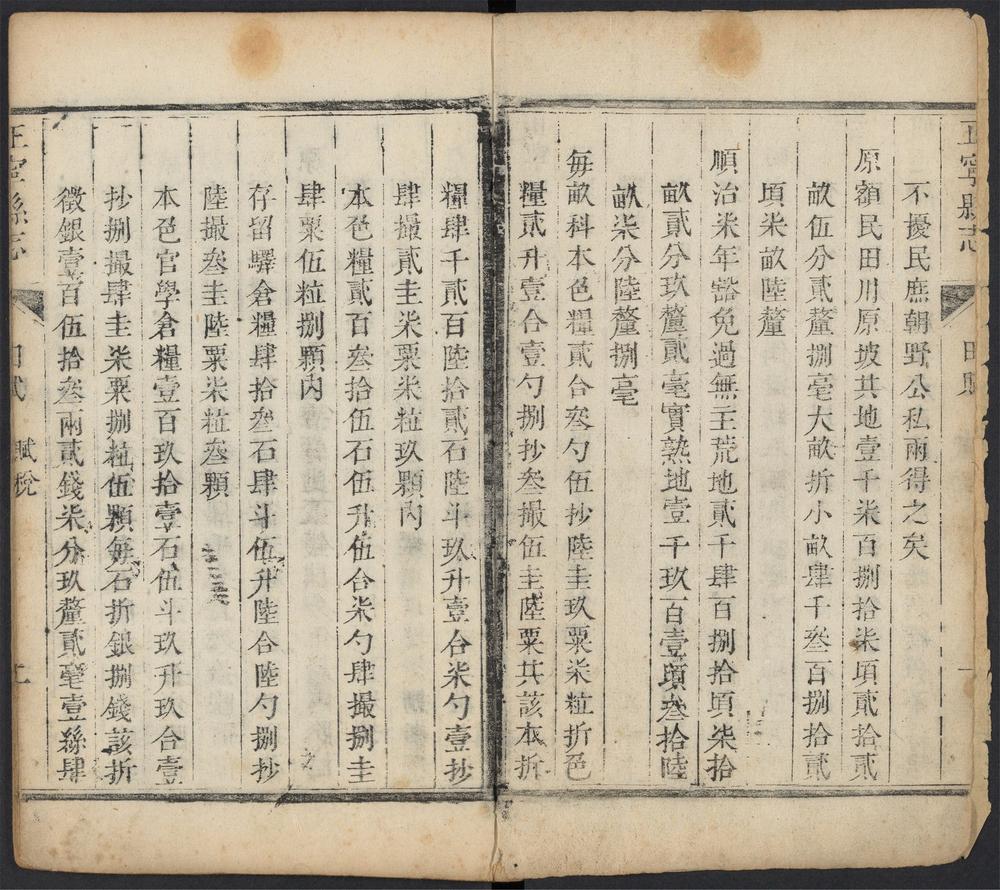 正寧縣志
田賦
不擾民庶朝野公私兩得之矣
原額民田川原坡共地壹千柒百捌拾柒頃貳拾貳
畝伍分貳釐捌毫大畝折小畝肆千叁百捌拾貳
頃柒畝陸釐
順治柒年豁免過無主荒地貳千肆百捌拾頃柒拾
畝貳分玖釐貳毫實熟地壹千玖百壹頃叁拾陸
畝柒分陸釐捌毫
每畝科本色糧貳合叁勺伍抄陸圭玖粟柒粒折色
糧貳升壹合壹勺捌抄叁撮伍圭陸粟共該本折
糧肆千貳百陸拾貳石陸斗玖升壹合柒勺壹抄
肆撮貳圭柒粟柒粒玖顆內
本色糧貳百叁拾伍石伍升伍合柒勺肆撮捌圭
肆粟伍粒捌顆內
存留驛倉糧肆拾叁石肆斗伍升陸合陸勺捌抄
陸撮叁圭陸粟柒粒叁顆
本色官學倉糧壹百玖拾壹石伍斗玖升玖合壹
抄捌撮肆圭柒粟捌粒伍顆每石折銀捌錢該折
徵銀壹百伍拾叁兩貳錢柒分玖釐貳毫壹絲肆
正寧縣志
田賦
賦稅